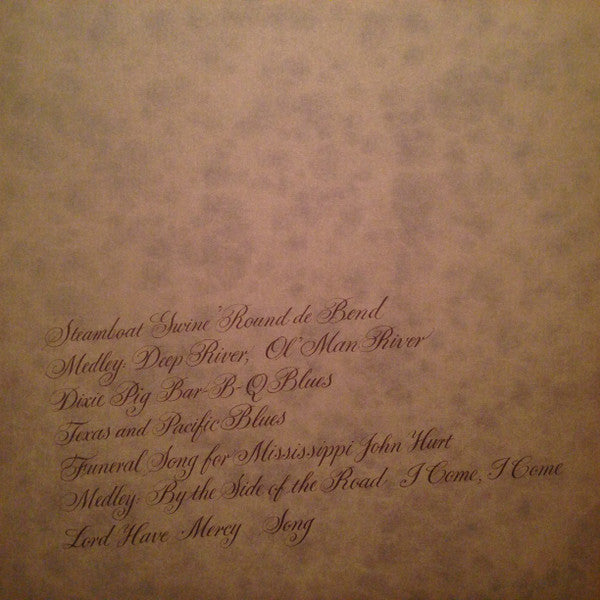 Steamboat Gwine 'Round de Bend
Medley: Deep River, Ol' Man River
Dixie Pig Bar-B-Q Blues
Texas and Pacific Blues
Funeral Song for Mississippi John Hurt
Medley: By the Side of the Road I Come, I Come
Lord Have Mercy Song